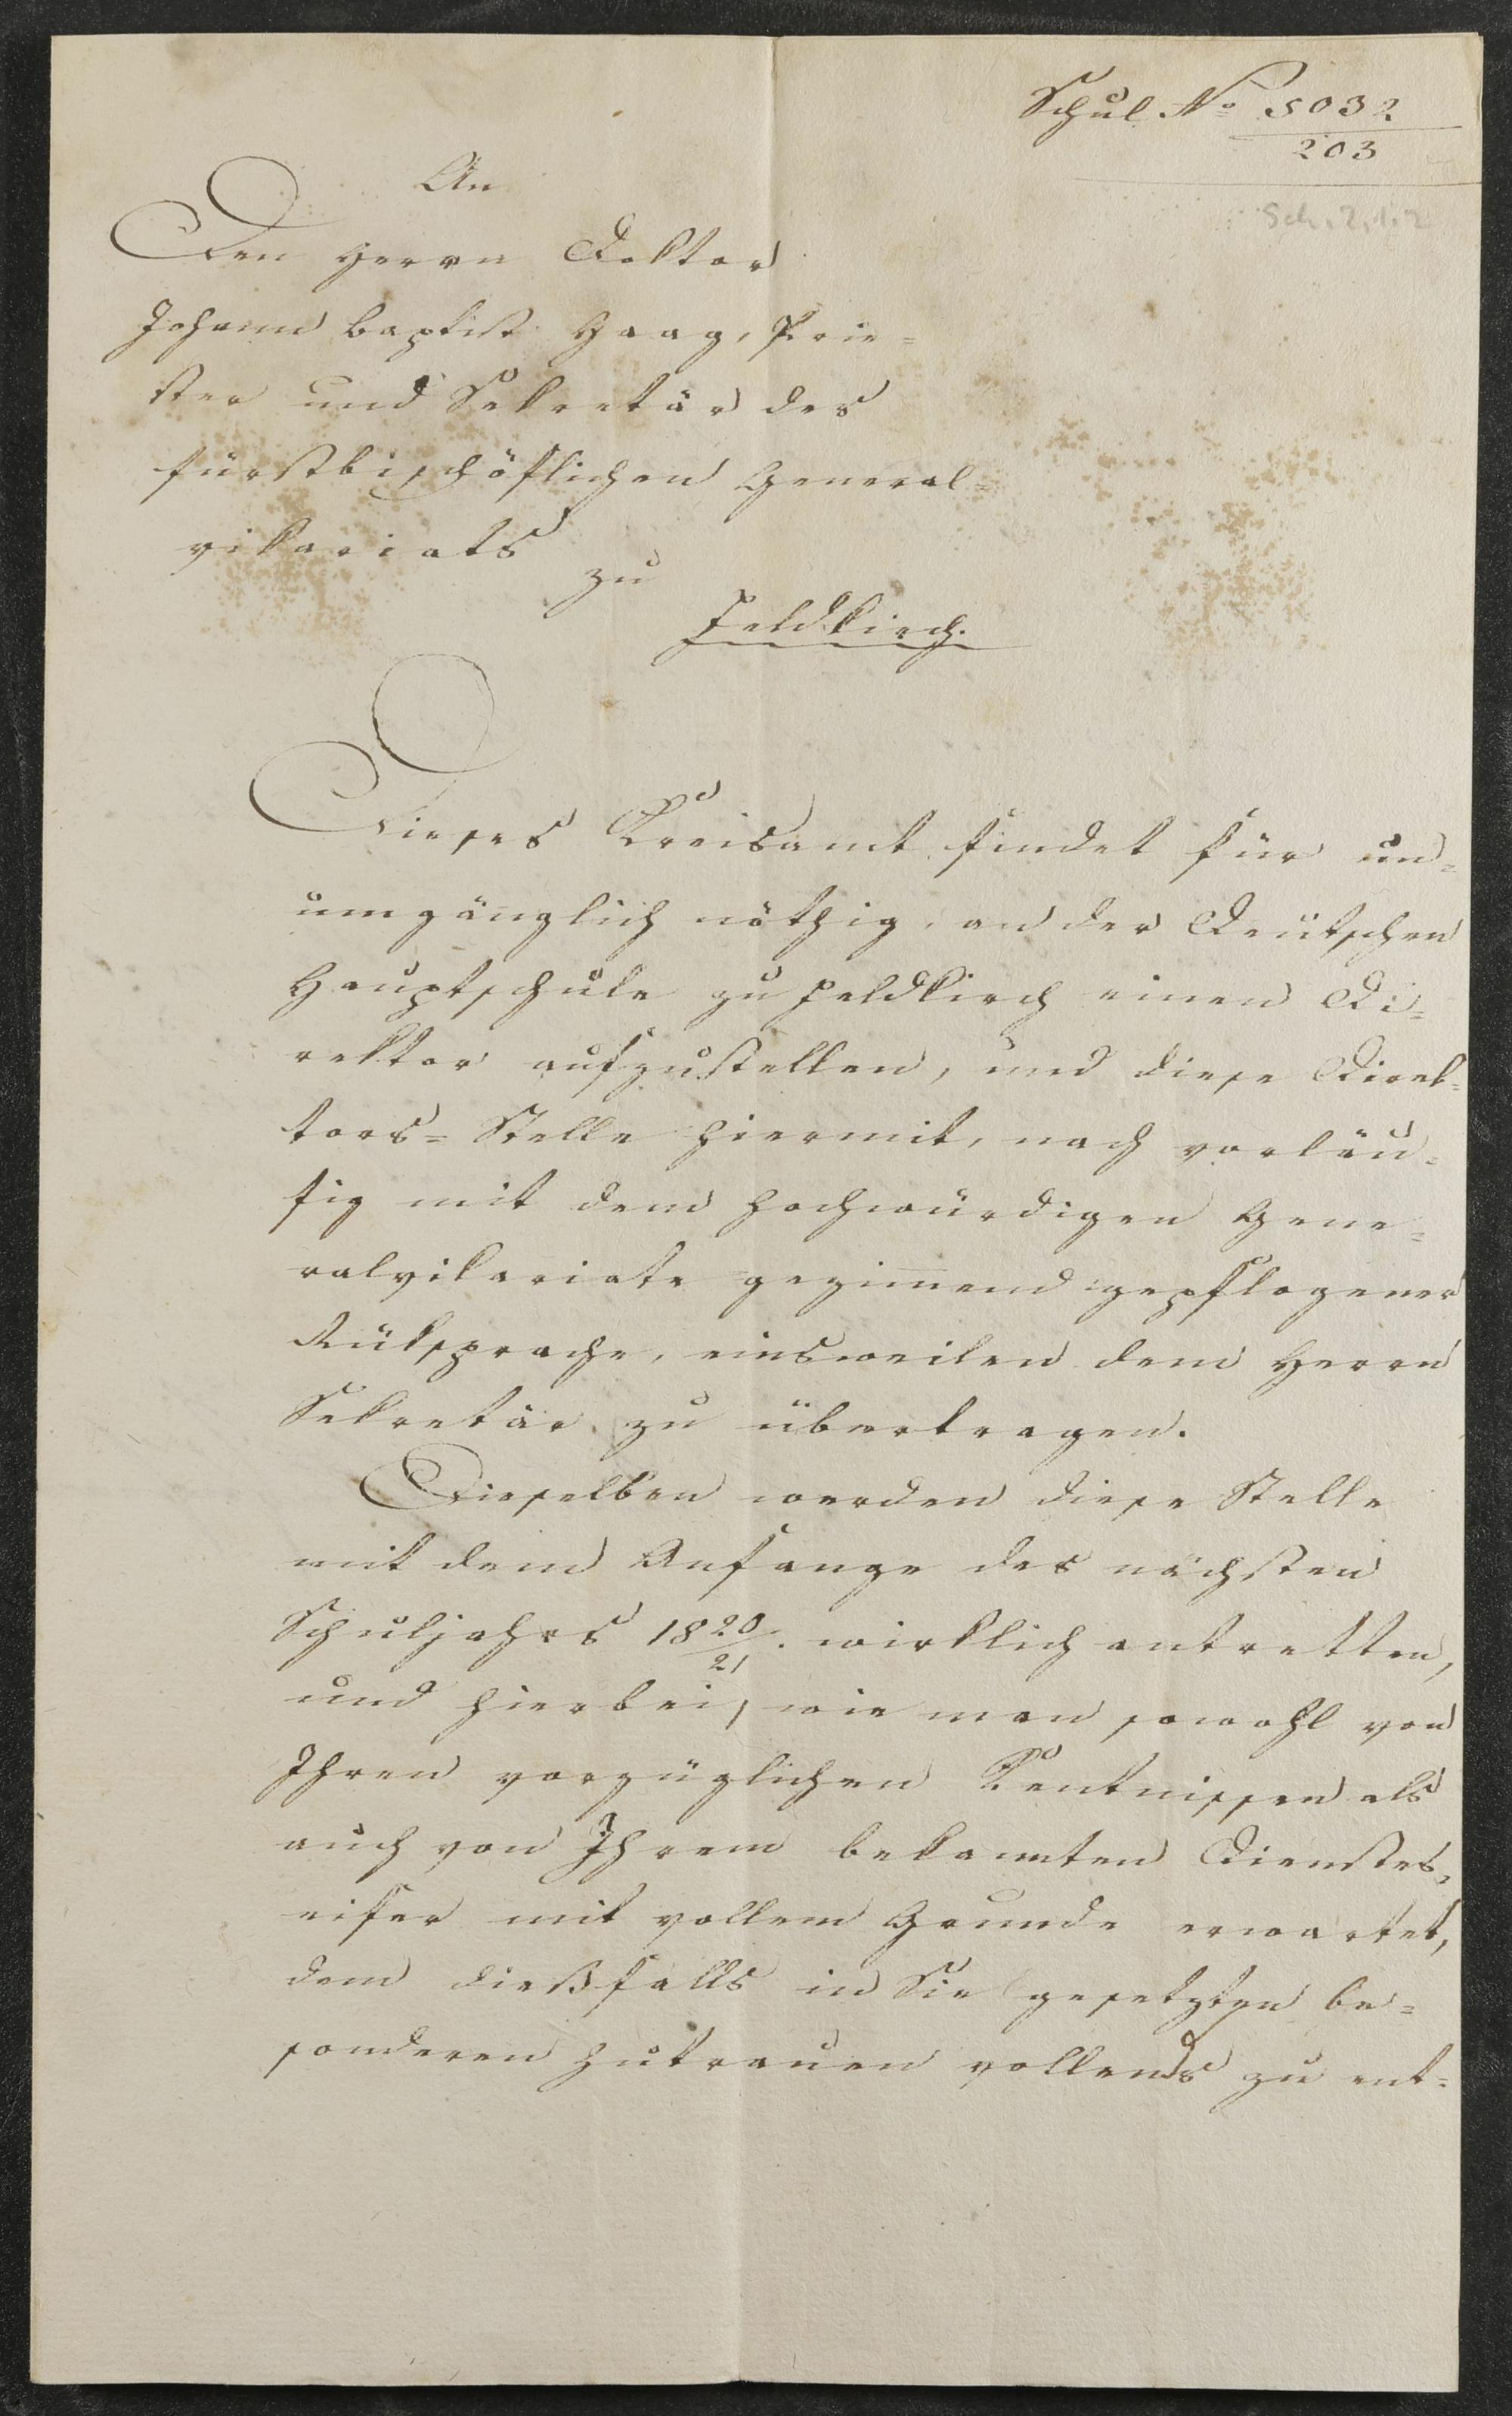 Schul N° 5032
203
Sch. 2, 1. 2
An
Den Herrn Doktor
Johann Baptist Haag, Prie=
ster und Sekretär des
fürstbischöflichen General=
vikariats
zu
Feldkirch.
Dieses Kreisamt findet für un=
umgänglich nöthig, an der Deutschen
Hauptschule zu Feldkirch einen Di=
rektor aufzustellen, und diese Direk=
tors=Stelle hiermit, nach vorläu=
fig mit dem hochwürdigen Gene=
ralvikariate geziemend gepflogener
Rüksprache, einsweilen dem Herrn
Sekretär zu übertragen.
Dieselben werden diese Stelle
mit dem Anfange des nächsten
Schuljahrs 1820/21. wirklich antretten,
und hierbei, wie man sowohl von
Ihren vorzüglichen Kentnissen als
auch von Ihrem bekannten Dienstes,
eifer mit vollem Grunde erwartet,
dem dießfalls in Sie gesetzten be=
sonderen Zutrauen vollends zu ent=